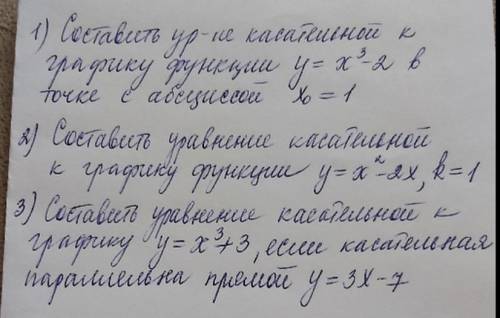 1) Составить ур-ие касательной к
графику функции y = x³-2 в
точке с абсциссой x₀ = 1
2) Составить уравнение касательной
к графику функции y = x²-2x, k=1
3) Составить уравнение касательной к
графику y = x³+3, если касательная
параллельна прямой y = 3x-7